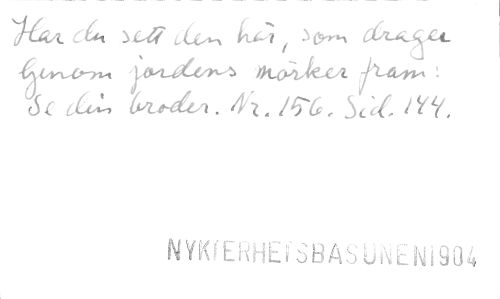 Har du sett den här, som drager
Genom jordens mörker fram:
Se din broder. Nr. 156. Sid. 144.
NYKTERHETSBASUNEN 1904